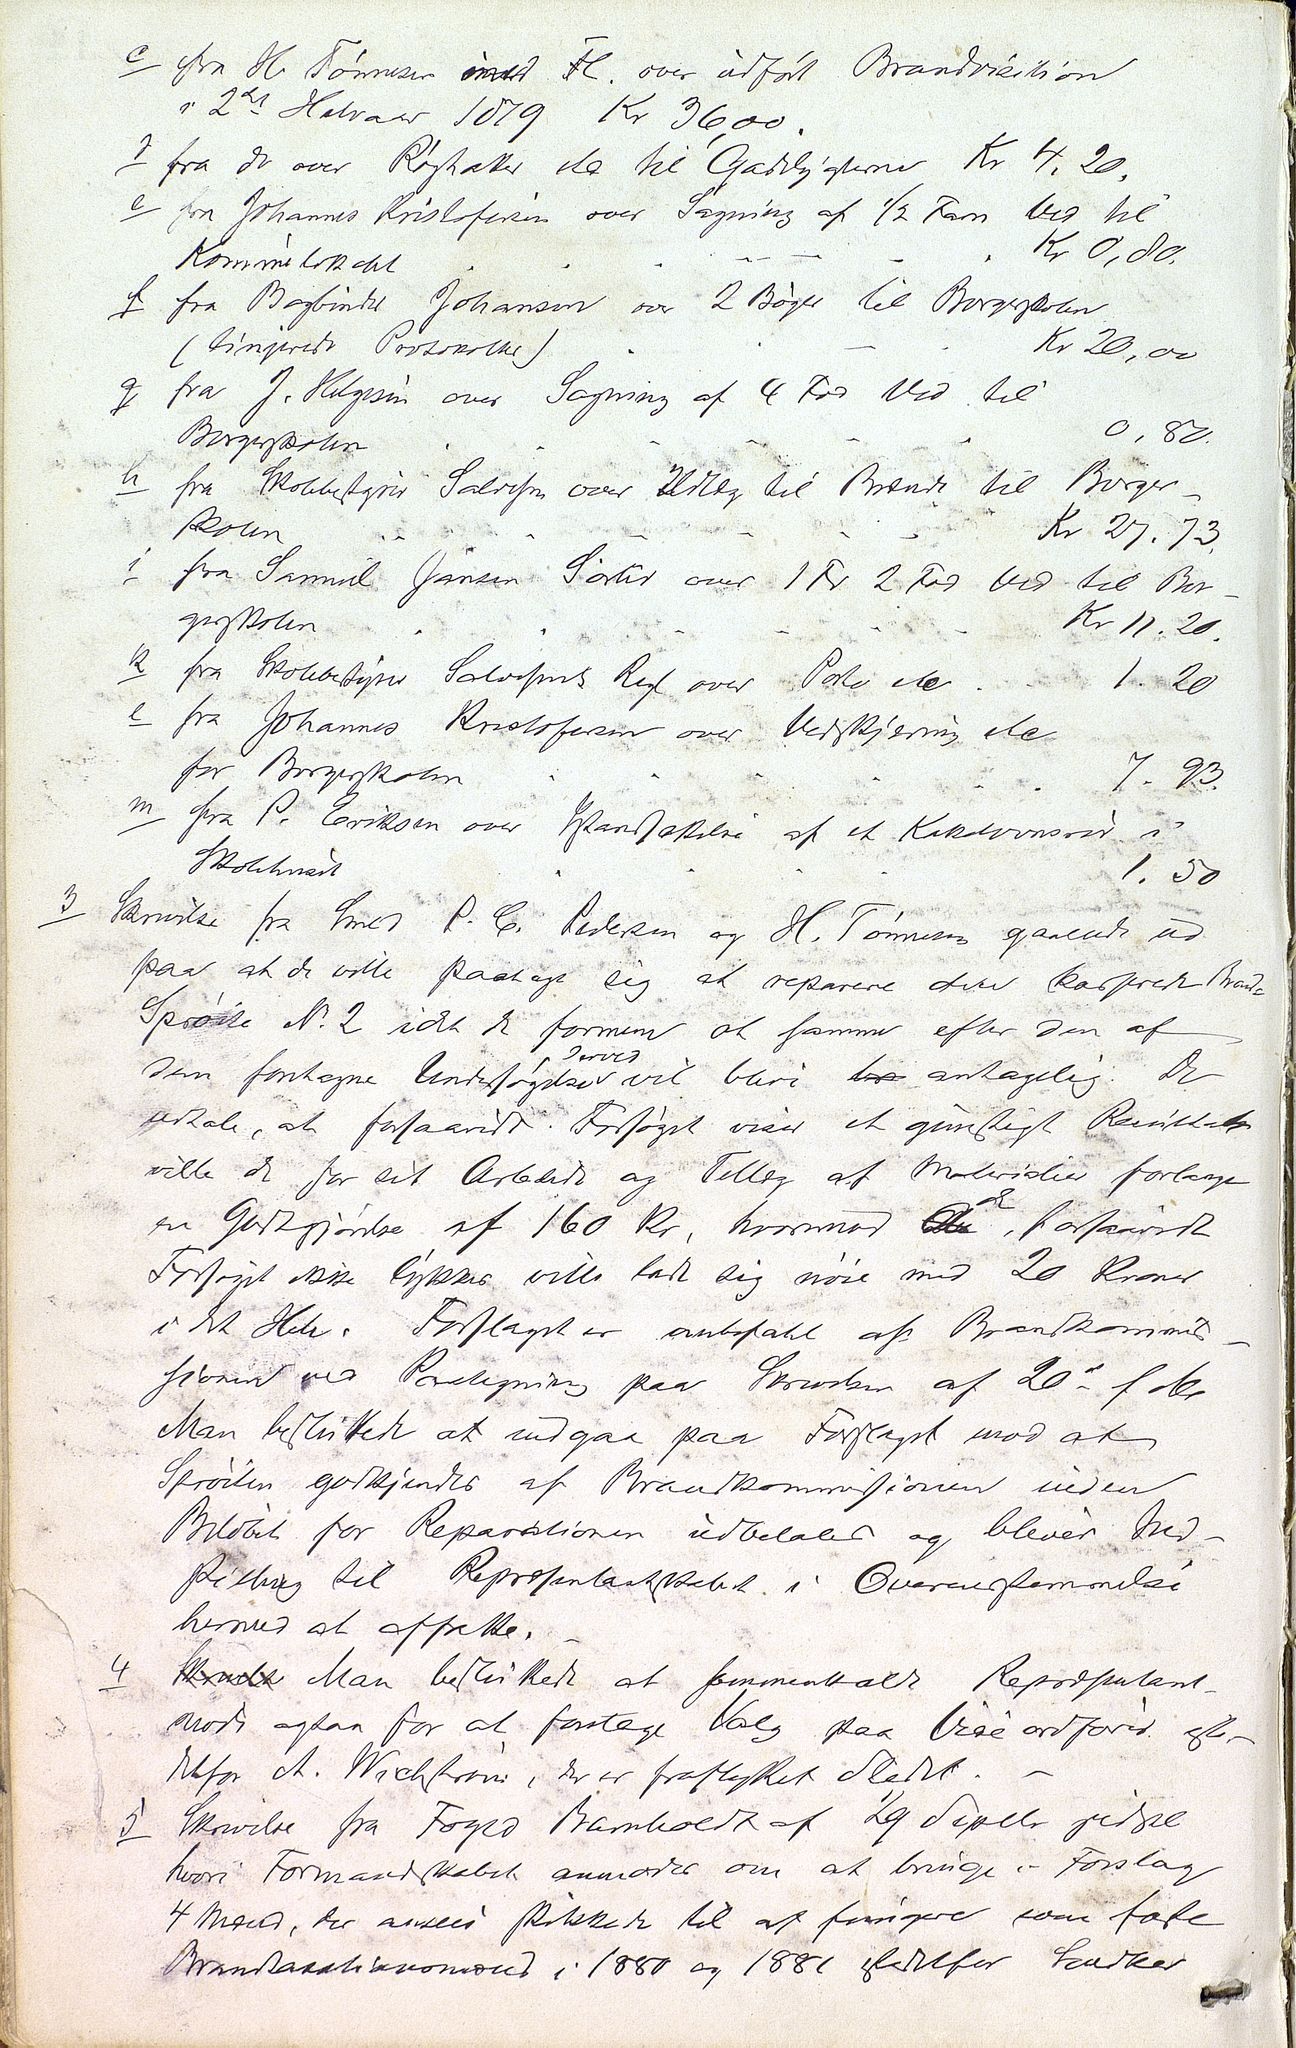 c fra H. Tønnesen med Fl. over udført Brandvisition
i 2det Halvaar 1879 Kr 36,00.
d fra do over Røghatter etc til Gadelygterne Kr 4. 20.
e fra Johannes Kristofersen over Sagning af 1/2 Favn Ved til
Kommunelokalet Kr 0,80.
f fra Bogbinder Johansen over 2 Bøger til Borgerskolen
(linjerede Protokoller) Kr 20,00
g fra J. Helgesen over Sagning af 4 Fod Ved til
Borgerskolen 0,80.
h fra Skolebestyrer Salvesen over Udlæg til Brænde til Borger-
skolen Kr 27. 73.
i fra Samuel Jensen over 1 Fv 2 Fod Ved til Bor-
gerskolen Kr 11. 20.
k fra Skolebestyrer Salvesens Regl over Porto etc 1. 20
l fra Johannes Kristofersen over Vedskjæring etc
for Borgerskolen 7. 93.
m fra P. Eriksen over Istandsættelse af et Kakelovnsrør i
Skolehuset 1. 50
3 Skrivelse fra Smed P. C. Pedersen og H. Tønnesen gaaende ud
paa at de ville paatage sig at reparere den kasserede Brand-
Sprøite No. 2 idet de formene at samme efter den af
dem foretagne Undersøgelse derved vil blive antagelig. De
udtale, at forsaavidt Forsøget viser et gunstigt Resultat
ville de for sit Arbeide og Tillæg af Materialier forlange
en Godtgjørelse af 160 Kr, hvorimod de, forsaavidt
Forsøget ikke lykkes ville lade sig nøie med 20 Kroner
i det Hele. Forslaget er anbefalet af Brandkommis-
sionen ved Paategning paa Skrivelsen af 20de f. M.
Man besluttede at indgaa paa Forslaget mod at
Sprøiten godkjendes af Brandkommissionen inden
Beløbet for Reparationen udbetales og bliver Ind-
stilling til Repræsentantskabet i Overensstemmelse
hermed at affatte.
4 Man besluttede at sammenkalde Repræsentant-
møde ogsaa for at foretage Valg paa Viceordfører iste-
detfor A. Wichstrøm, der er fraflyttet Stedet.
5 Skrivelse fra Foged Barnholdt af 29 Septbr sidstl
hvori Formandskabet anmodes om at bringe i Forslag
4 Mænd, der ansees skikkede til at fungere som faste
Brandtaxationsmænd i 1880 og 1881 istedetfor Snedker